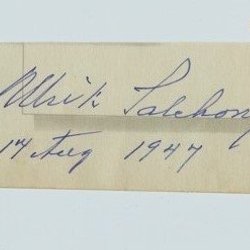 Ulrik Salchow
14 Aug 1947